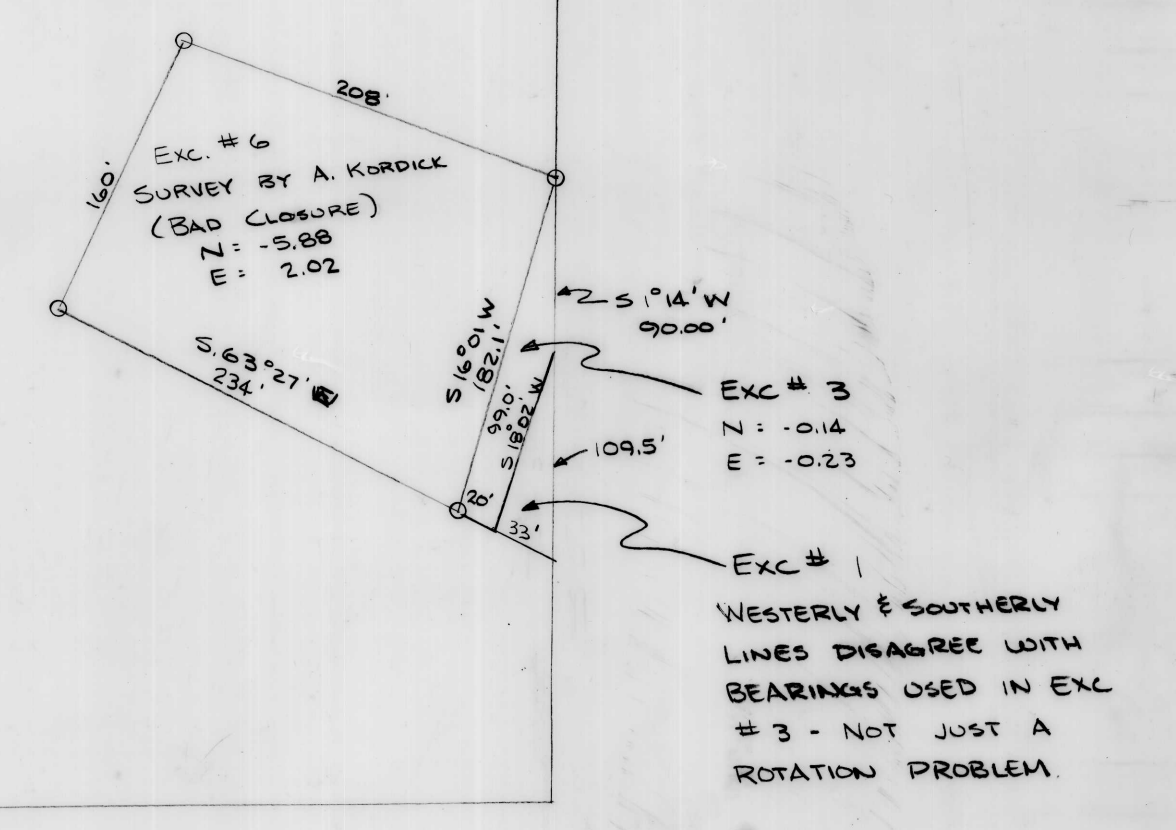 208'
160'
Exc. # 6
SURVEY BY A. KORDICK
(BAD CLOSURE)
N = -5.88
E = 2.02
S 1°14' W
90.00'
S 16°01' W
182.1'
S. 63°27' E
234'
99.0'
S 18°02' W
Exc # 3
N = -0.14
E = -0.23
109.5'
20'
33'
Exc # 1
WESTERLY & SOUTHERLY
LINES DISAGREE WITH
BEARINGS USED IN EXC
# 3 - NOT JUST A
ROTATION PROBLEM.